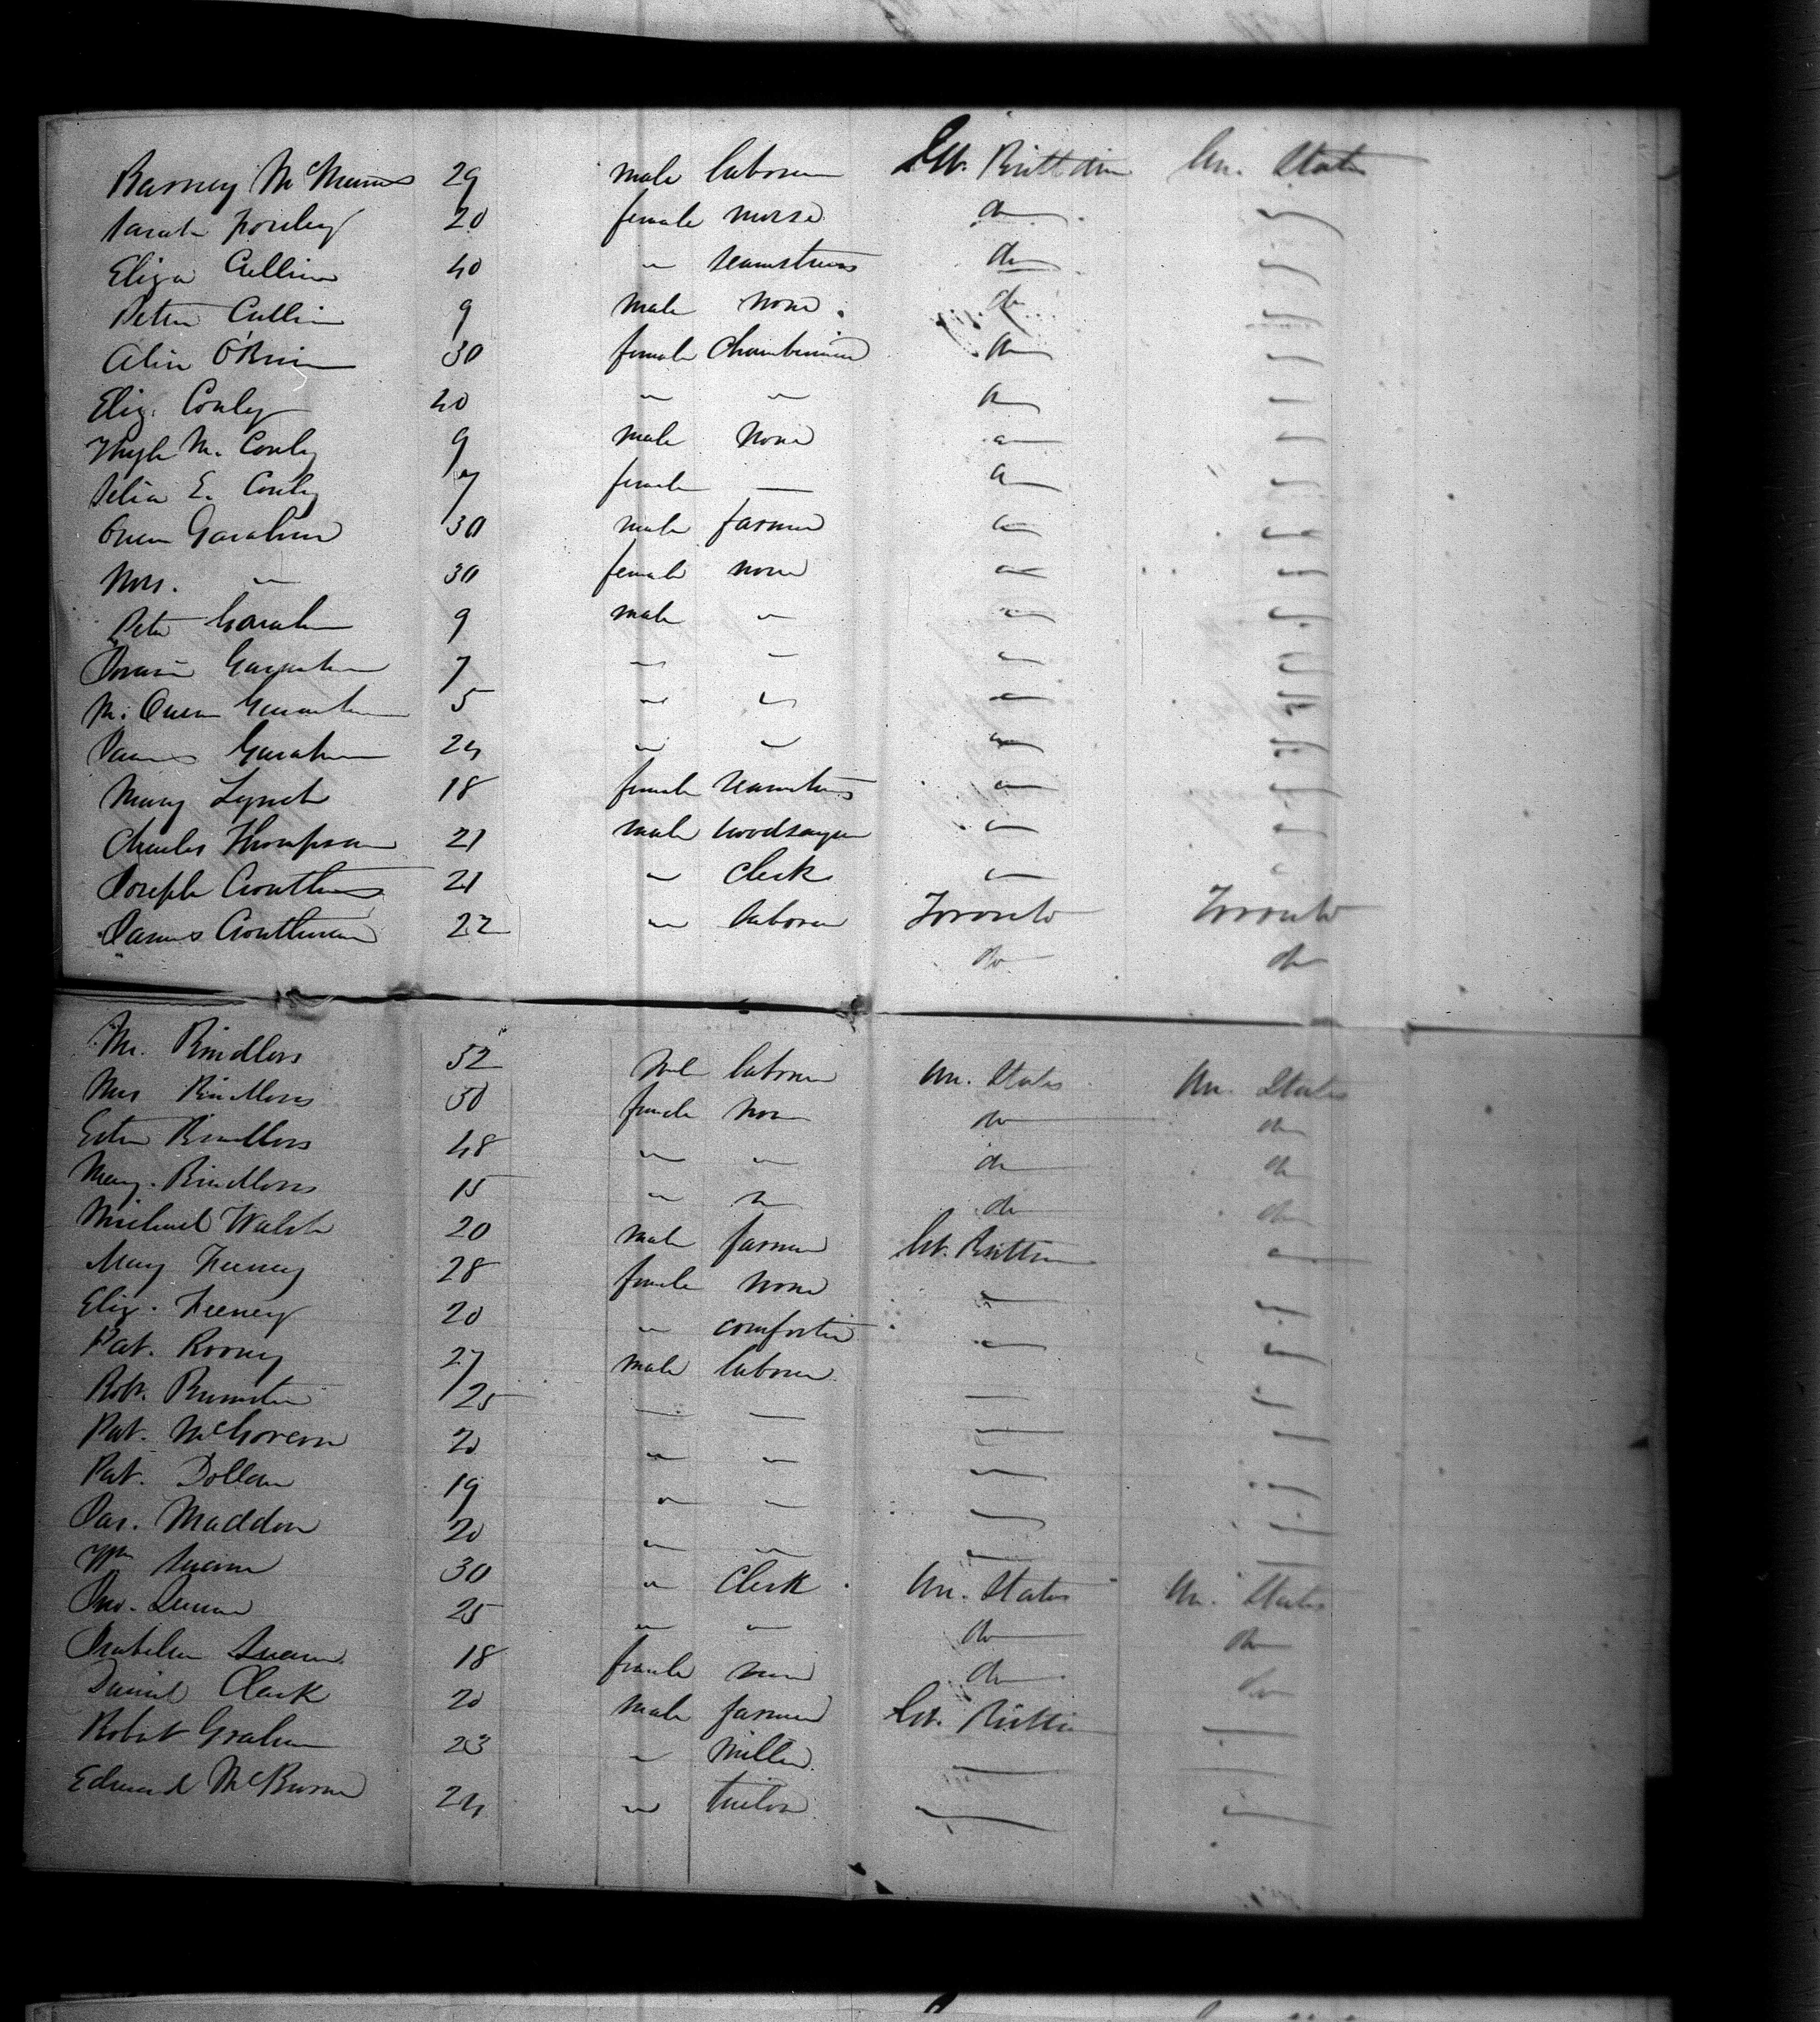 Barney McManus 29 male laborer Gt. Brittain Un. States
Sarah 20 female nurse do "
Eliza Cullin 40 " seamstress do "
Peter Cullin 9 male none do "
O'Brien 30 female Chambermaid do "
Eliz. Conley 20 " " do "
Hugh M. Conley 9 male none " "
Delia E. Conley 7 female — " "
Owen Garahan 30 male farmer " "
Mrs. " 30 female none " "
Peter Garahan 9 male " " "
7 " " " "
M. Owen 5 " " " "
James Garahan 24 " " " "
Mary Lynch 18 female seamstress " "
Charles Thompson 21 male " "
Joseph 21 " Clerk "
James 22 " laborer Toronto Toronto
do do
Mr. Rindlors 52 male laborer Un. States Un. States
Mrs Rindlors 50 female none do do
Rindlors 48 " " do do
Mary Rindlors 15 " " do do
Michael Walsh 20 male farmer Gt. Brittain "
Mary Feeney 28 female none " "
Eliz. Feeney 20 " " "
Pat. Rooney 27 male laborer — "
Robt. 25 — — — "
Pat. McGovern 20 " " " "
Pat. Dollan 19 " " " "
Jas. Maddon 20 " " "
Wm 30 " Clerk Un. States Un. States
Jno. 25 " " do do
Isabella 18 female none do do
Daniel Clark 20 male farmer Gt. Brittain —
Robert Graham 23 " Miller — —
Edward 24 " — "